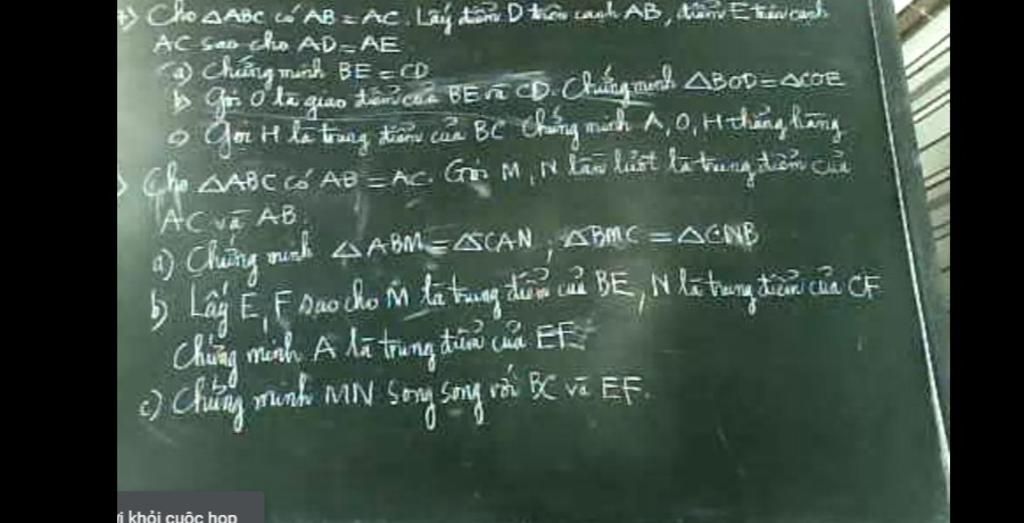 Cho △ABC có AB = AC. Lấy điểm D trên cạnh AB, điểm E trên cạnh
AC sao cho AD = AE
a) Chứng minh BE = CD
b Gọi O là giao điểm của BE và CD. Chứng minh △BOD = △COE
c) Gọi H là trung điểm của BC Chứng minh A, O, H thẳng hàng
Cho △ABC có AB = AC. Gọi M, N lần lượt là trung điểm của
AC và AB.
a) Chứng minh △ABM = △CAN, △BMC = △CNB
b) Lấy E, F sao cho M là trung điểm của BE, N là trung điểm của CF
Chứng minh A là trung điểm của EF
c) Chứng minh MN song song với BC và EF.
khỏi cuộc họp